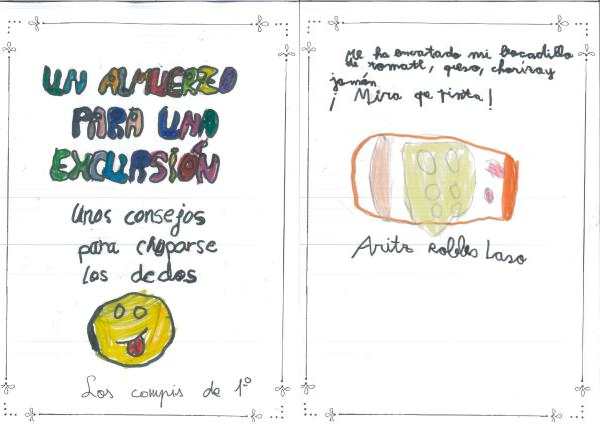 UN ALMUERZO
PARA UNA
EXCURSIÓN
Unos consejos
para chuparse
los dedos
Los compis de 1º
Me ha encatado mi bocadillo
de tomatt, queso, chorizo y
jamón
¡ Mira qe pinta!
Aritz Robles Laso